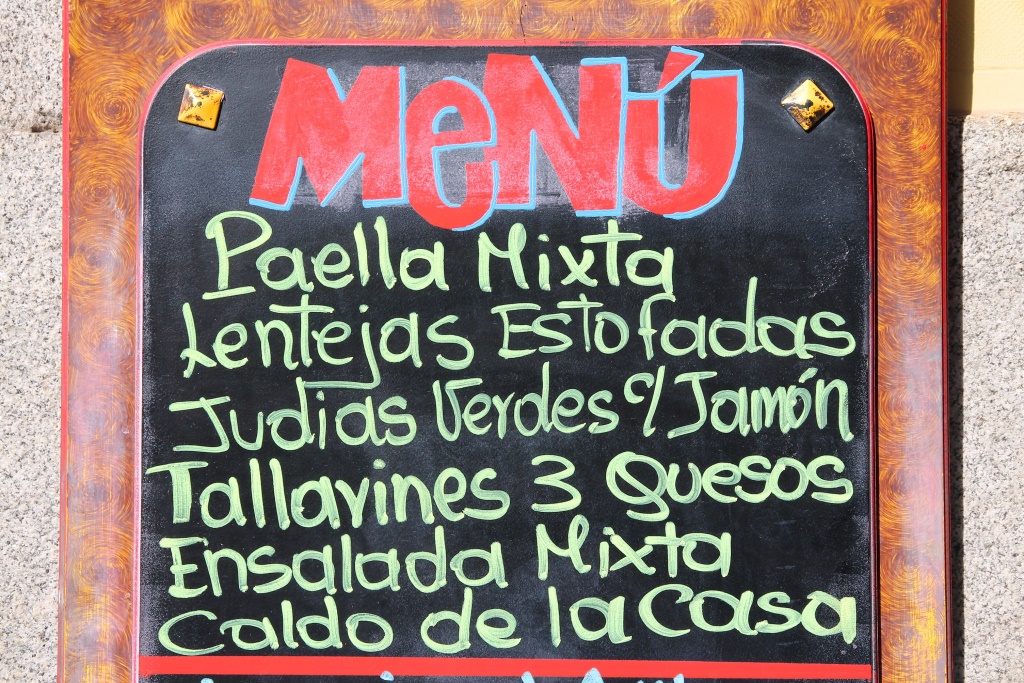 MeNÚ
Paella Mixta
Lentejas Estofadas
Judias Verdes c/ Jamón
Tallarines 3 Quesos
Ensalada Mixta
Caldo de la Casa